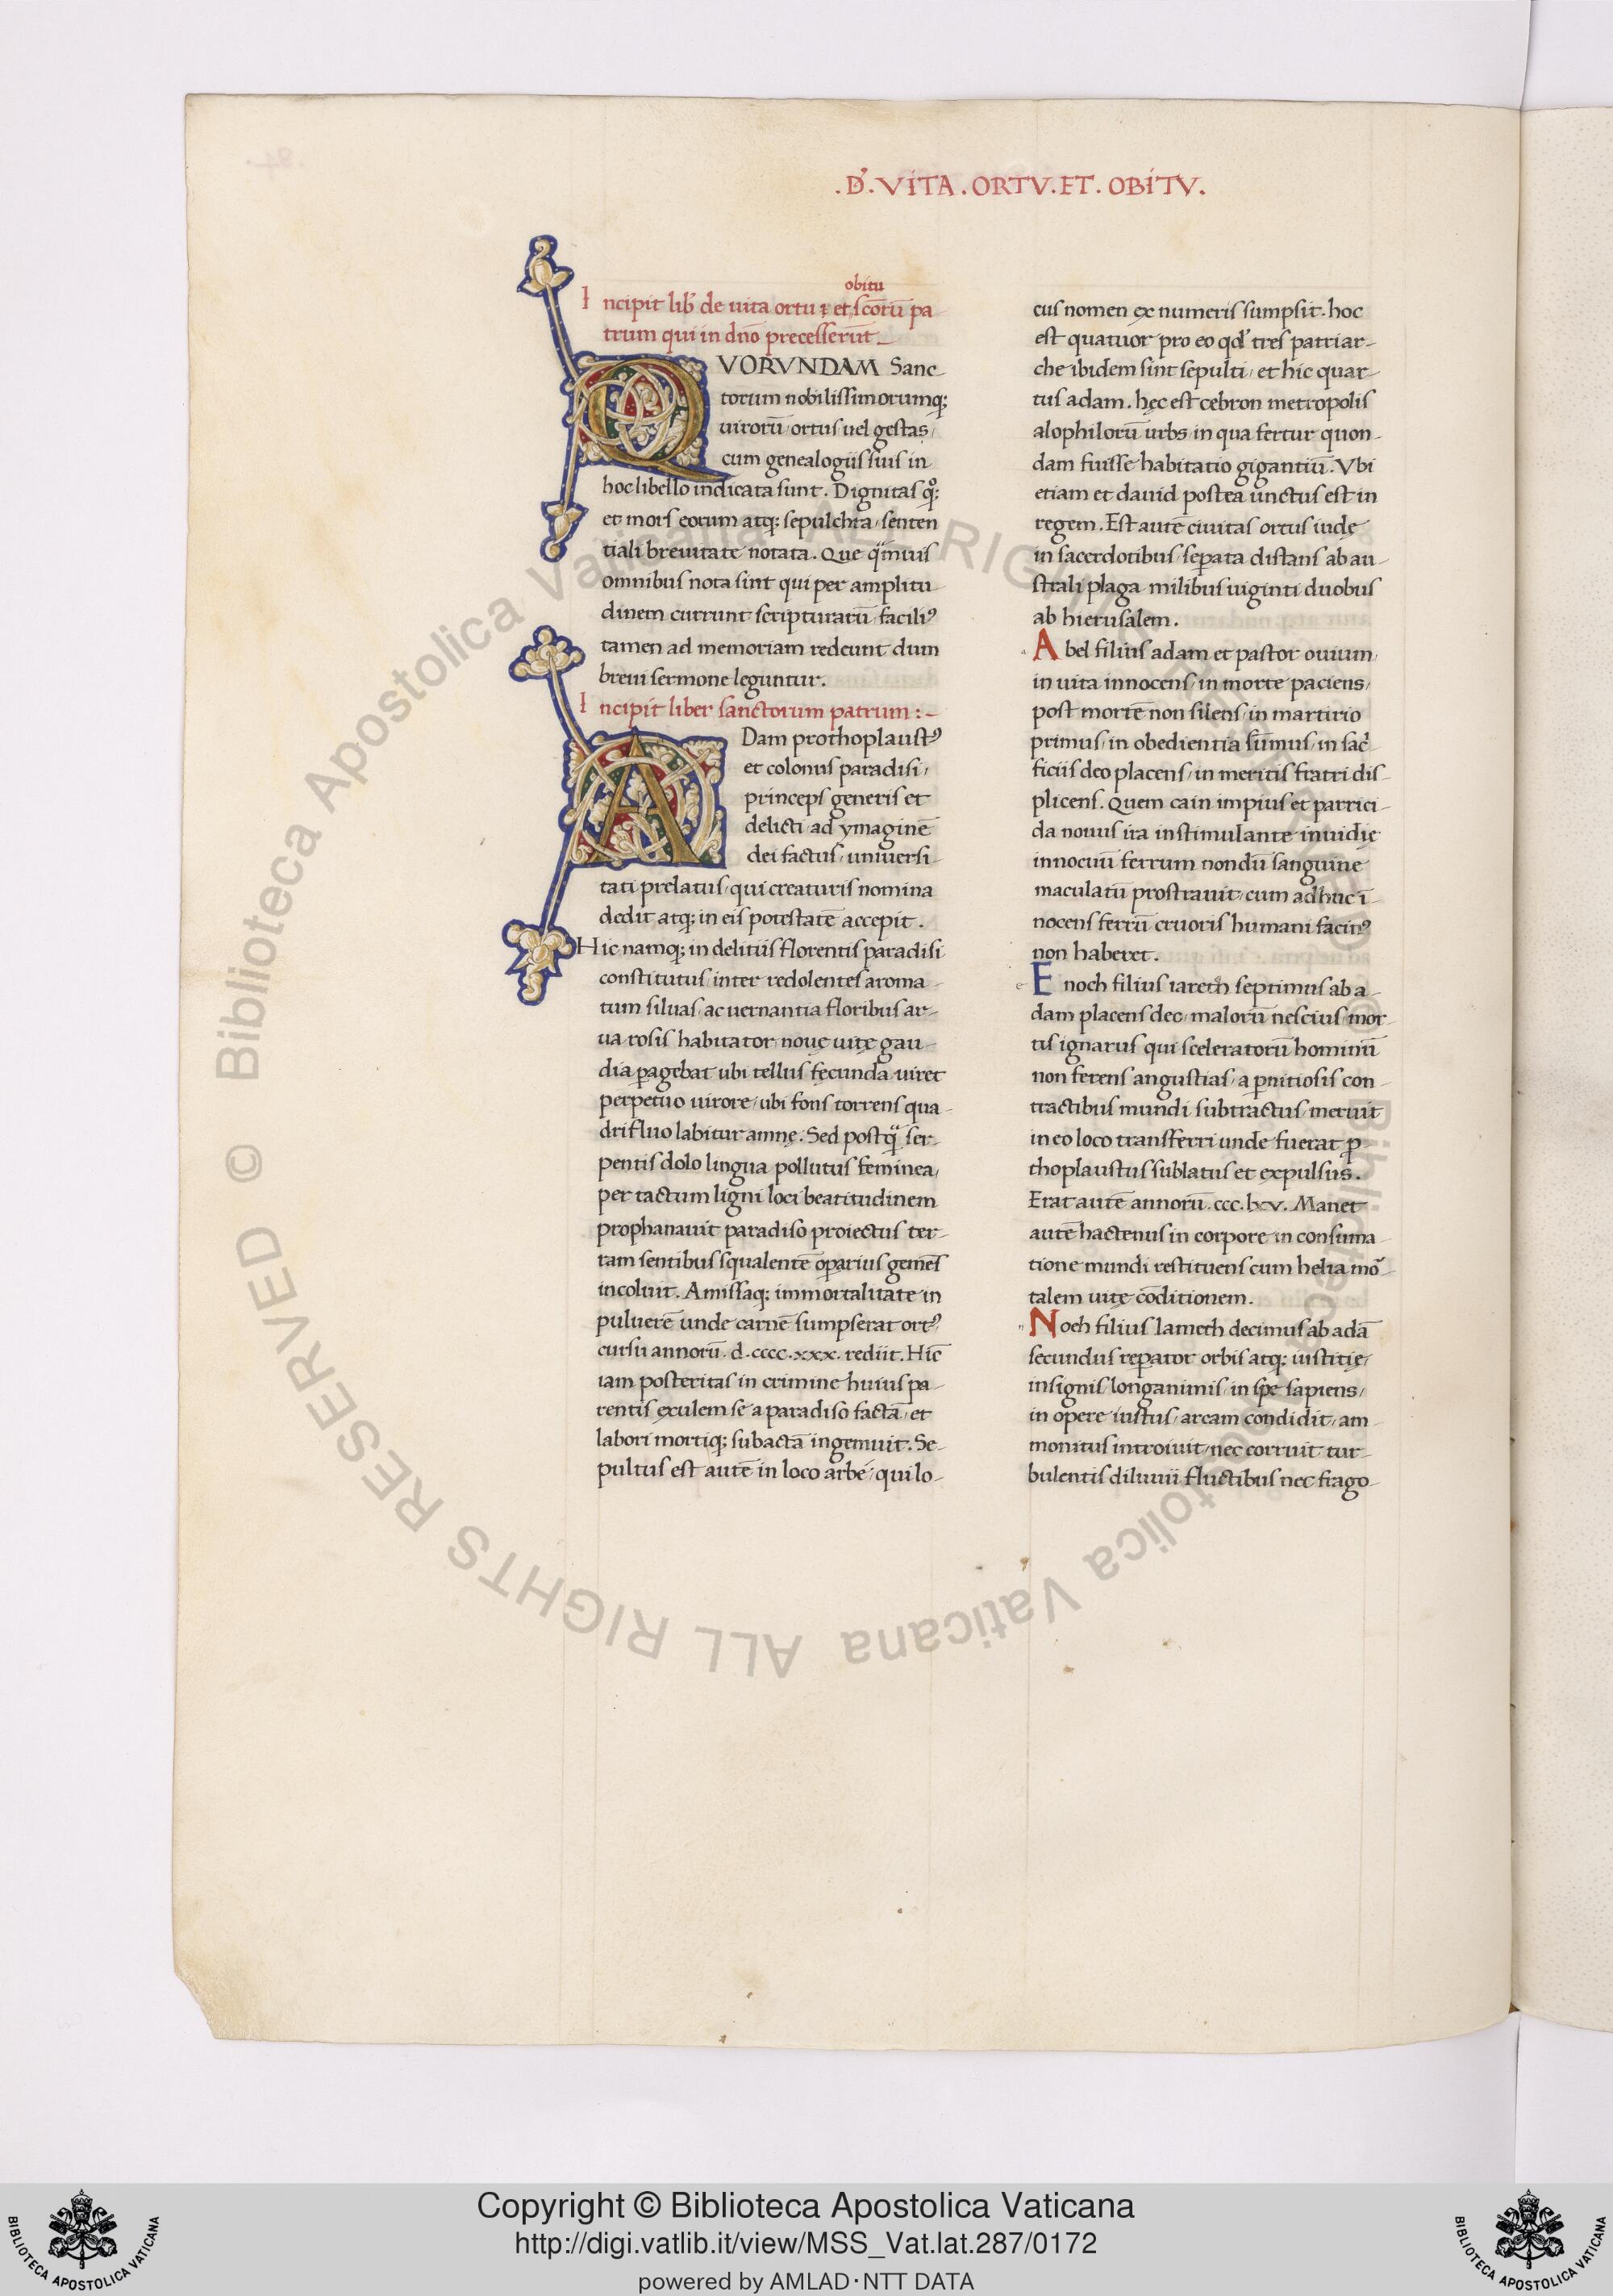 .D̕. VITA. ORTV. ET. OBITV.
obitu
Incipit lib̕ de uita ortu ⁊ et scoru̅ pa
trum qui in dn̅o precesseru̅t_
QVORVNDAM Sanc-
torum nobilissimorumq;
uiroru̅, ortus uel gestas,
cum genealogiis suis in
hoc libello indicata sunt. Dignitas qͦ;
et mors eorum atq; sepulchra, senten
tiali breuitate notata. Que q̈̅muis
omnibus nota sint qui per amplitu
dinem currunt scripturaru̅, faciliꝰ
tamen ad memoriam redeunt dum
breui sermone leguntur.
Incipit liber sanctorum patrum :-
ADam prothoplaustꝰ
et colonus paradisi,
princeps generis et
delicti, ad ymagine̅
dei factus, uniuersi-
tati prelatus, qui creaturis nomina
dedit atq; in eis potestate̅ accepit.
Hic namq; in delitiis florentis paradisi
constitutus, inter redolentes aroma-
tum siluas, ac uernantia floribus ar-
ua, rosis habitator, nouę uitę gau-
dia ꝑagebat ubi tellus fecunda uiret
perpetuo uirore, ubi fons torrens qua-
drifluo labitur amnę. Sed postq̈̅ ser-
pentis dolo lingua pollutus feminea,
per tactum ligni loci beatitudinem
prophanauit paradiso proiectus ter-
ram sentibus squalente̅ oꝑarius geme̅s
incoluit. Amissaq; immortalitate in
puluere̅ unde carne̅ sumpserat ortꝰ,
cursu annoru̅. d. cccc. xxx. rediit. Hic̅
iam posteritas in crimine huius pa-
rentis exulem se a paradiso facta̅, et
labori mortiq; subacta̅ ingemuit. Se-
pultus est aute̅ in loco arbe, qui lo-
cus nomen ex numeris sumpsit. hoc
est quatuor pro eo qd̕ tres patriar-
che ibidem sint sepulti, et hic quar-
tus adam. hęc est cebron metropolis
alophiloru̅ urbs, in qua fertur quon-
dam fuisse habitatio gigantiu̅. Vbi
etiam et dauid postea unctus est in
regem. Est aute̅ ciuitas ortus iudę
in sacerdotibus, seꝑata distans ab au-
strali plaga milibus uiginti duobus
ab hierusalem.
a Abel filius adam et pastor ouium,
in uita innocens, in morte paciens,
post morte̅ non silens, in martirio
primus, in obedientia su̅mus, in sac̕-
ficiis deo placens, in meritis fratri dis-
plicens. Quem cain impius et parrici-
da nouus ira instimulante inuidię
innocuu̅ ferrum nondu̅ sanguine
maculatu̅ prostrauit, cum adhuc i̅-
nocens ferru̅ cruoris humani facinꝰ
non haberet.
e Enoch filius iareth septimus ab a-
dam placens deo, maloru̅ nescius, mor-
tis ignarus qui sceleratoru̅ hominu̅
non ferens angustias, a ꝑnitiosis con-
tractibus mundi subtractus, meruit
in eo loco transferri unde fuerat ꝓ
thoplaustus sublatus et expulsus.
Erat aute̅ annoru̅. ccc. lxv. Manet
aute̅ hactenus in corpore in consuma-
tione mundi restituens cum helia mo̕-
talem uitę co̅ditionem.
n Noeh filius lameth decimus ab ada̅
secundus reꝑator orbis atq; iustitię,
insignis, longanimis, in spe sapiens,
in opere iustus, arcam condidit, am-
monitus introiuit, nec corruit tur-
bulentis diluuii fluctibus nec frago-
© Biblioteca Apostolica Vaticana ALL RIGHTS RESERVED
© Biblioteca Apostolica Vaticana ALL RIGHTS RESERVED
Copyright © Biblioteca Apostolica Vaticana
http://digi.vatlib.it/view/MSS_Vat.lat.287/0172
powered by AMLAD·NTT DATA
BIBLIOTECA APOSTOLICA VATICANA
BIBLIOTECA APOSTOLICA VATICANA